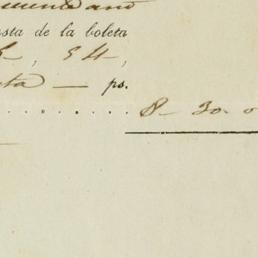 sta de la boleta
, 54,
ta — ps.
8 - 30. 0